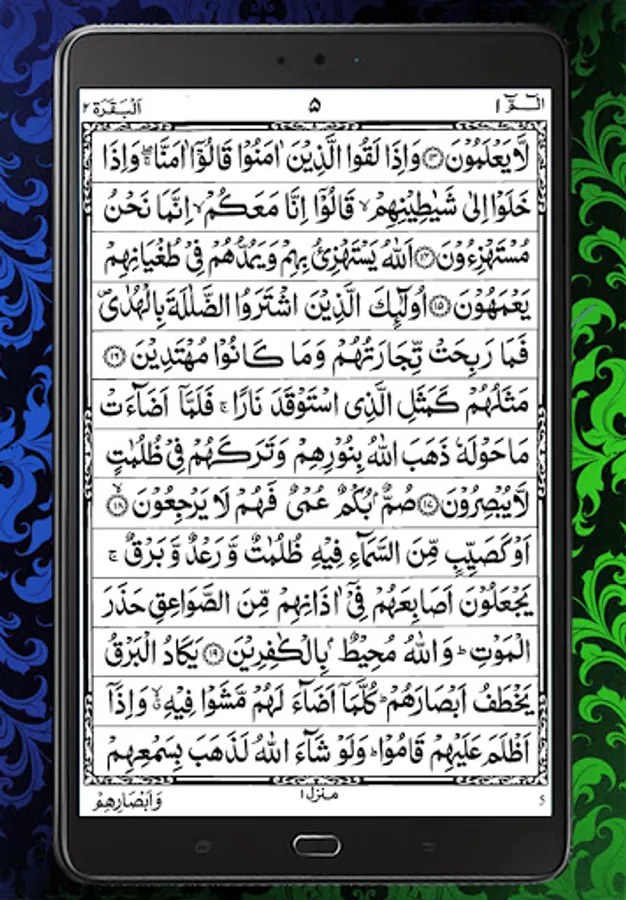 الٓمّٓ ١ ۵ اَلْبَقَرَة ٢
لَّا يَعْلَمُوْنَ ۝۱۳ وَاِذَا لَقُوا الَّذِيْنَ اٰمَنُوْا قَالُوْٓا اٰمَنَّا ۖۚ وَاِذَا
خَلَوْا اِلٰى شَيٰطِيْنِهِمْ ۙ قَالُوْٓا اِنَّا مَعَكُمْ ۙ اِنَّمَا نَحْنُ
مُسْتَهْزِءُوْنَ ۝۱۴ اَللّٰهُ يَسْتَهْزِئُ بِهِمْ وَيَمُدُّهُمْ فِيْ طُغْيَانِهِمْ
يَعْمَهُوْنَ ۝۱۵ اُولٰٓئِكَ الَّذِيْنَ اشْتَرَوُا الضَّلٰلَةَ بِالْهُدٰى ۪
فَمَا رَبِحَتْ تِّجَارَتُهُمْ وَمَا كَانُوْا مُهْتَدِيْنَ ۝۱۶
مَثَلُهُمْ كَمَثَلِ الَّذِى اسْتَوْقَدَ نَارًا ۚ فَلَمَّآ اَضَآءَتْ
مَا حَوْلَهٗ ذَهَبَ اللّٰهُ بِنُوْرِهِمْ وَتَرَكَهُمْ فِيْ ظُلُمٰتٍ
لَّا يُبْصِرُوْنَ ۝۱۷ صُمٌّۢ بُكْمٌ عُمْيٌ فَهُمْ لَا يَرْجِعُوْنَ ۙ۝۱۸
اَوْ كَصَيِّبٍ مِّنَ السَّمَآءِ فِيْهِ ظُلُمٰتٌ وَّرَعْدٌ وَّبَرْقٌ ۚ
يَجْعَلُوْنَ اَصَابِعَهُمْ فِيْٓ اٰذَانِهِمْ مِّنَ الصَّوَاعِقِ حَذَرَ
الْمَوْتِ ؕ وَاللّٰهُ مُحِيْطٌۢ بِالْكٰفِرِيْنَ ۝۱۹ يَكَادُ الْبَرْقُ
يَخْطَفُ اَبْصَارَهُمْ ؕ كُلَّمَآ اَضَآءَ لَهُمْ مَّشَوْا فِيْهِ ۙۗ وَاِذَآ
اَظْلَمَ عَلَيْهِمْ قَامُوْا ؕ وَلَوْ شَآءَ اللّٰهُ لَذَهَبَ بِسَمْعِهِمْ
5 منزل ١ وَاَبْصَارِهِمْ